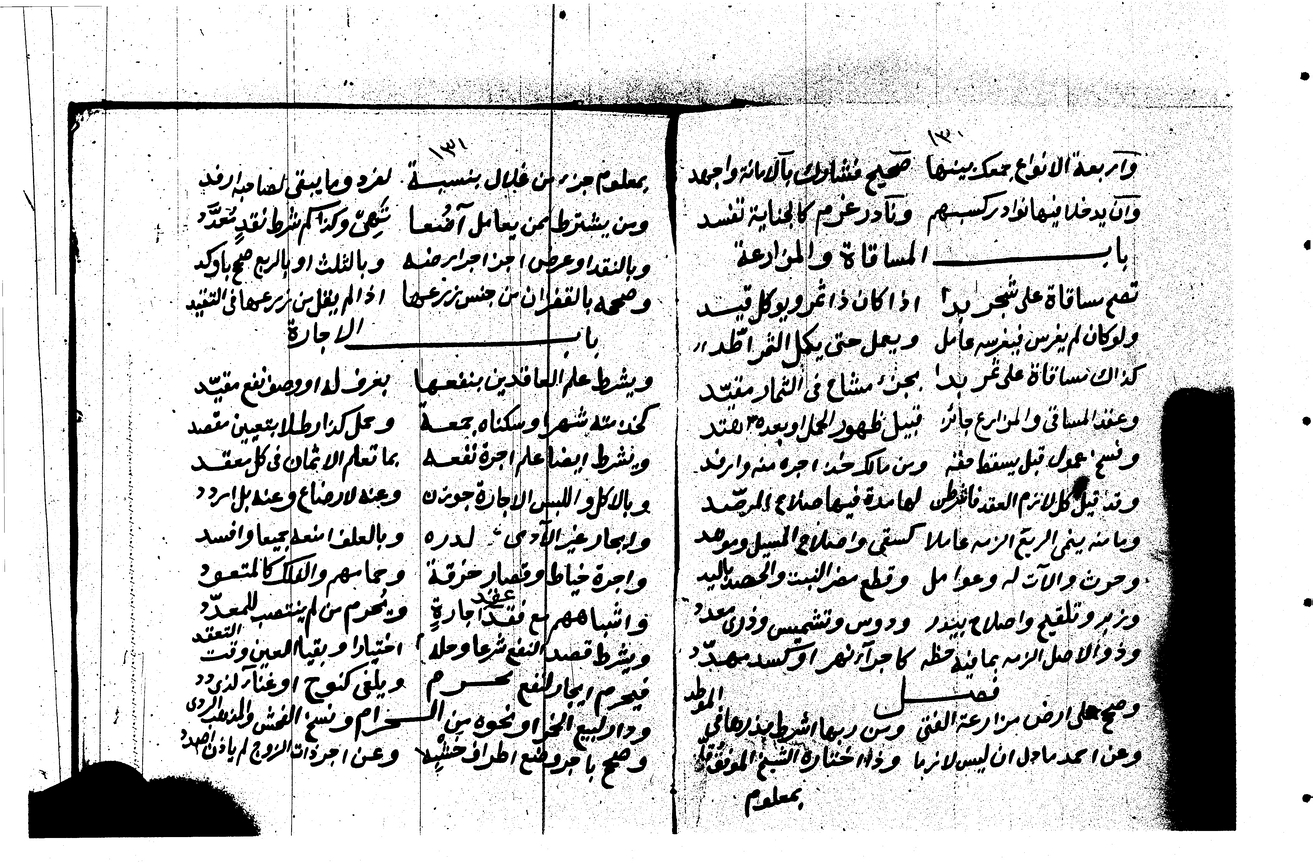 ١٣٠
وأربعة الانواع جمعك بينها صحيح فشارك بالامانة واجهد
وان يدخلا فيها نوادر كسبهم ونادر غرم كالجناية تفسد
باب المساقاة والمزارعة
تصح مساقاة على شجر بدا اذا كان ذا ثمر وبوكل قيد
ولو كان لم يغرس فيغرسه عامل ويعمل حتى يكمل الثمر اطد
كذاك مساقاة على ثمر بدا بجزء مشاع فى الثمار مقيد
وعقد المساقى والمزارع جائز قبيل ظهور الحمل او بعده
وفسخ عمول قبل يسقط حقه ومن مالك خذ اجره منه وارفد
وقد قيل كل لازم العقد لها مدة فيها صلاح
وما منه ينمى الريع الزمه عاملا كسقى واصلاح المسيل
وحرث والآت له وعوامل وقطع مضر النبت والحصد باليد
وزبر وتلقيح واصلاح بيدر ودوس وتشميس وذرى معدد
وذو الاصل الزمه بما فيه حفظه كاجراء نهر او كسد مهدد
فصل
وصح على ارض مزارعة الفتى ومن ربها اشرط بذرها فى الموطد
وعن احمد ما دل ان ليس لازما وذا اختاره الشيخ الموفق
بمعلوم
١٣١
بمعلوم جزء من غلال بنسبة لفرد وما يبقى لصاحبه ارفد
ومن يشترط ممن يعامل وكذا كم شرط نقد معدد
وبالنقد او عرض اجز اجر ارضه وبالثلث او بالربع صح باوكد
وصححه بالقفزان من جنس زرعها اذا لم يقل من زرعها فى التقيد
باب الاجارة
ويشرط علم العاقدين بنفعها بعرف له او وصف نفع مقيد
كخدمته شهرا وسكناه جمعة وحمل كذا رطلا بتعيين مقصد
ويشرط ايضا علم اجرة نفعه بما تعلم الاثمان فى كل معقد
وبالاكل واللبس الاجارة جوزن وعنه لارضاع وعنه بل اردد
وايجار غير الآدمى لدره وبالعلف امنعه جميعا وافسد
واجرة خياط وقصار خرقة وحمامهم والفلك كالمتعود
واشباههم مع فقد عقد اجارة ويحرم من لم ينتصب للمعدد
ويشرط قصد النفع شرعا وحله اختيارا وبقيا العين وقت التعقد
فيحرم ايجار لنفع محرم ويلغى كنوح او غناء لذى دد
ودار لبيع الخمر او نحوه من الحرام وفسخ الفحش والمذهب الردى
وصح باجر وضع اطراف خشبه وعن اجر ذات الزوج لم ياذن اصدد